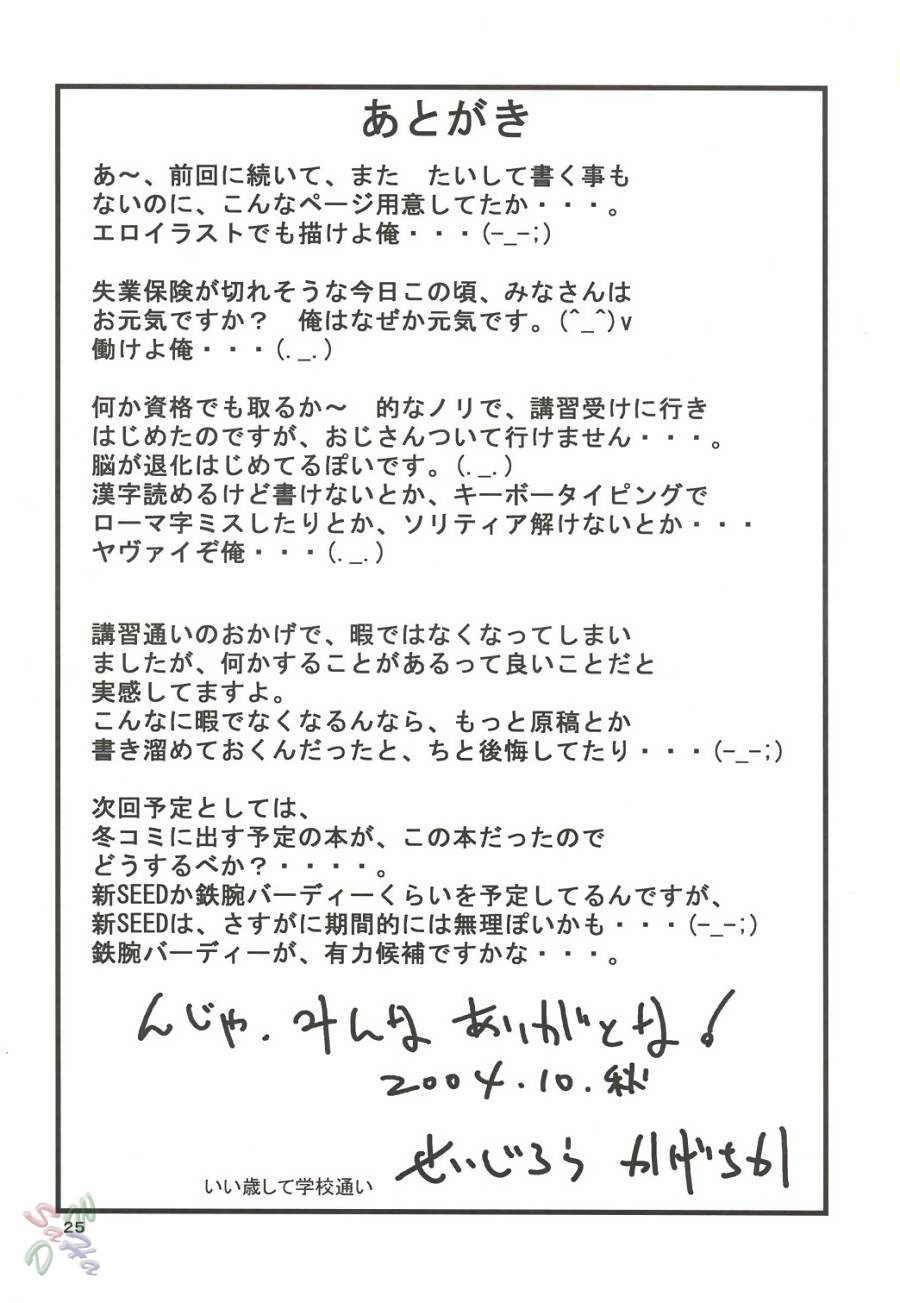 あとがき
あ～、前回に続いて、また　たいして書く事も
ないのに、こんなページ用意してたか・・・。
エロイラストでも描けよ俺・・・(-_-;)
失業保険が切れそうな今日この頃、みなさんは
お元気ですか？　俺はなぜか元気です。(^_^)v
働けよ俺・・・(._.)
何か資格でも取るか～　的なノリで、講習受けに行き
はじめたのですが、おじさんついて行けません・・・。
脳が退化はじめてるぽいです。(._.)
漢字読めるけど書けないとか、キーボータイピングで
ローマ字ミスしたりとか、ソリティア解けないとか・・・
ヤヴァイぞ俺・・・(._.)
講習通いのおかげで、暇ではなくなってしまい
ましたが、何かすることがあるって良いことだと
実感してますよ。
こんなに暇でなくなるんなら、もっと原稿とか
書き溜めておくんだったと、ちと後悔してたり・・・(-_-;)
次回予定としては、
冬コミに出す予定の本が、この本だったので
どうするべか？・・・・。
新SEEDか鉄腕バーディーくらいを予定してるんですが、
新SEEDは、さすがに期間的には無理ぽいかも・・・(-_-;)
鉄腕バーディーが、有力候補ですかな・・・。
んじゃ.みんなありがとな！
2004.10.秋
せいじろう かげちか
いい歳して学校通い
25